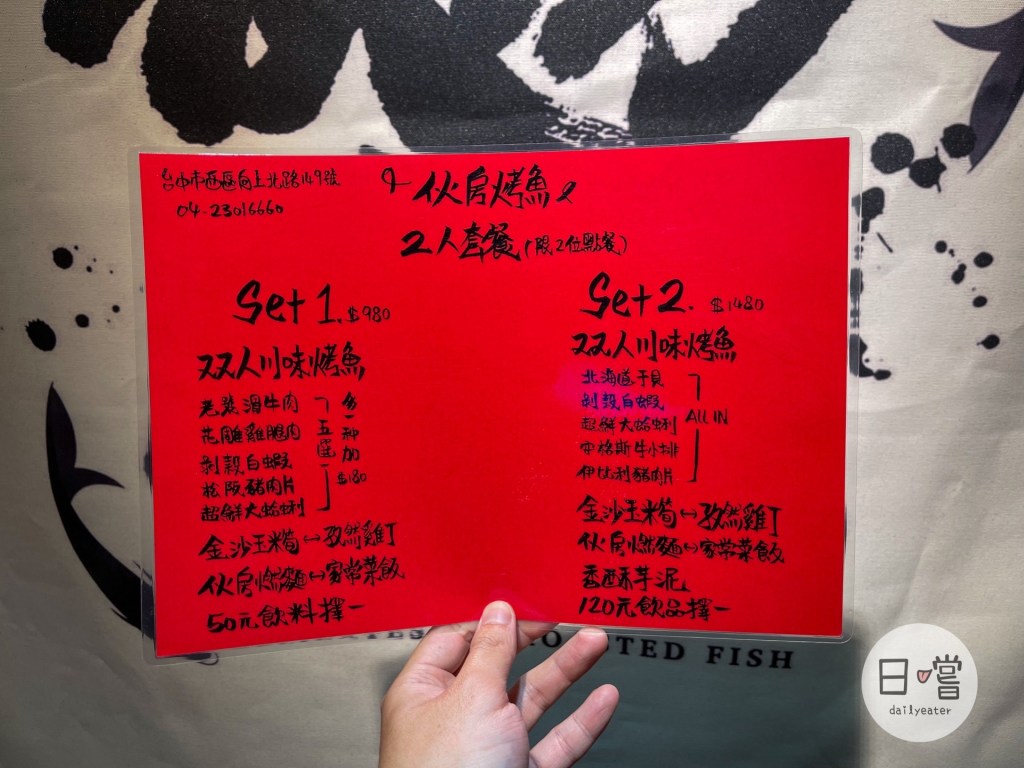 台中市西區向上北路149號
04-23016660
伙房烤魚
2人套餐(限2位點餐)
Set 1. $980
双人川味烤魚
老漿滑牛肉
花雕雞腿肉
剝殼白蝦
松阪豬肉片
超鮮大蛤蜊
五選
多一種加
$180
金沙玉米筍↔孜然雞丁
伙房燃麵↔家常菜飯
50元飲料擇一
Set 2. $1480
双人川味烤魚
北海道干貝
剝殼白蝦
超鮮大蛤蜊
安格斯牛小排
伊比利豬肉片
ALL IN
金沙玉米筍↔孜然雞丁
伙房燃麵↔家常菜飯
香酥芋泥
120元飲品擇一
STED FISH
日嚐
dailyeater